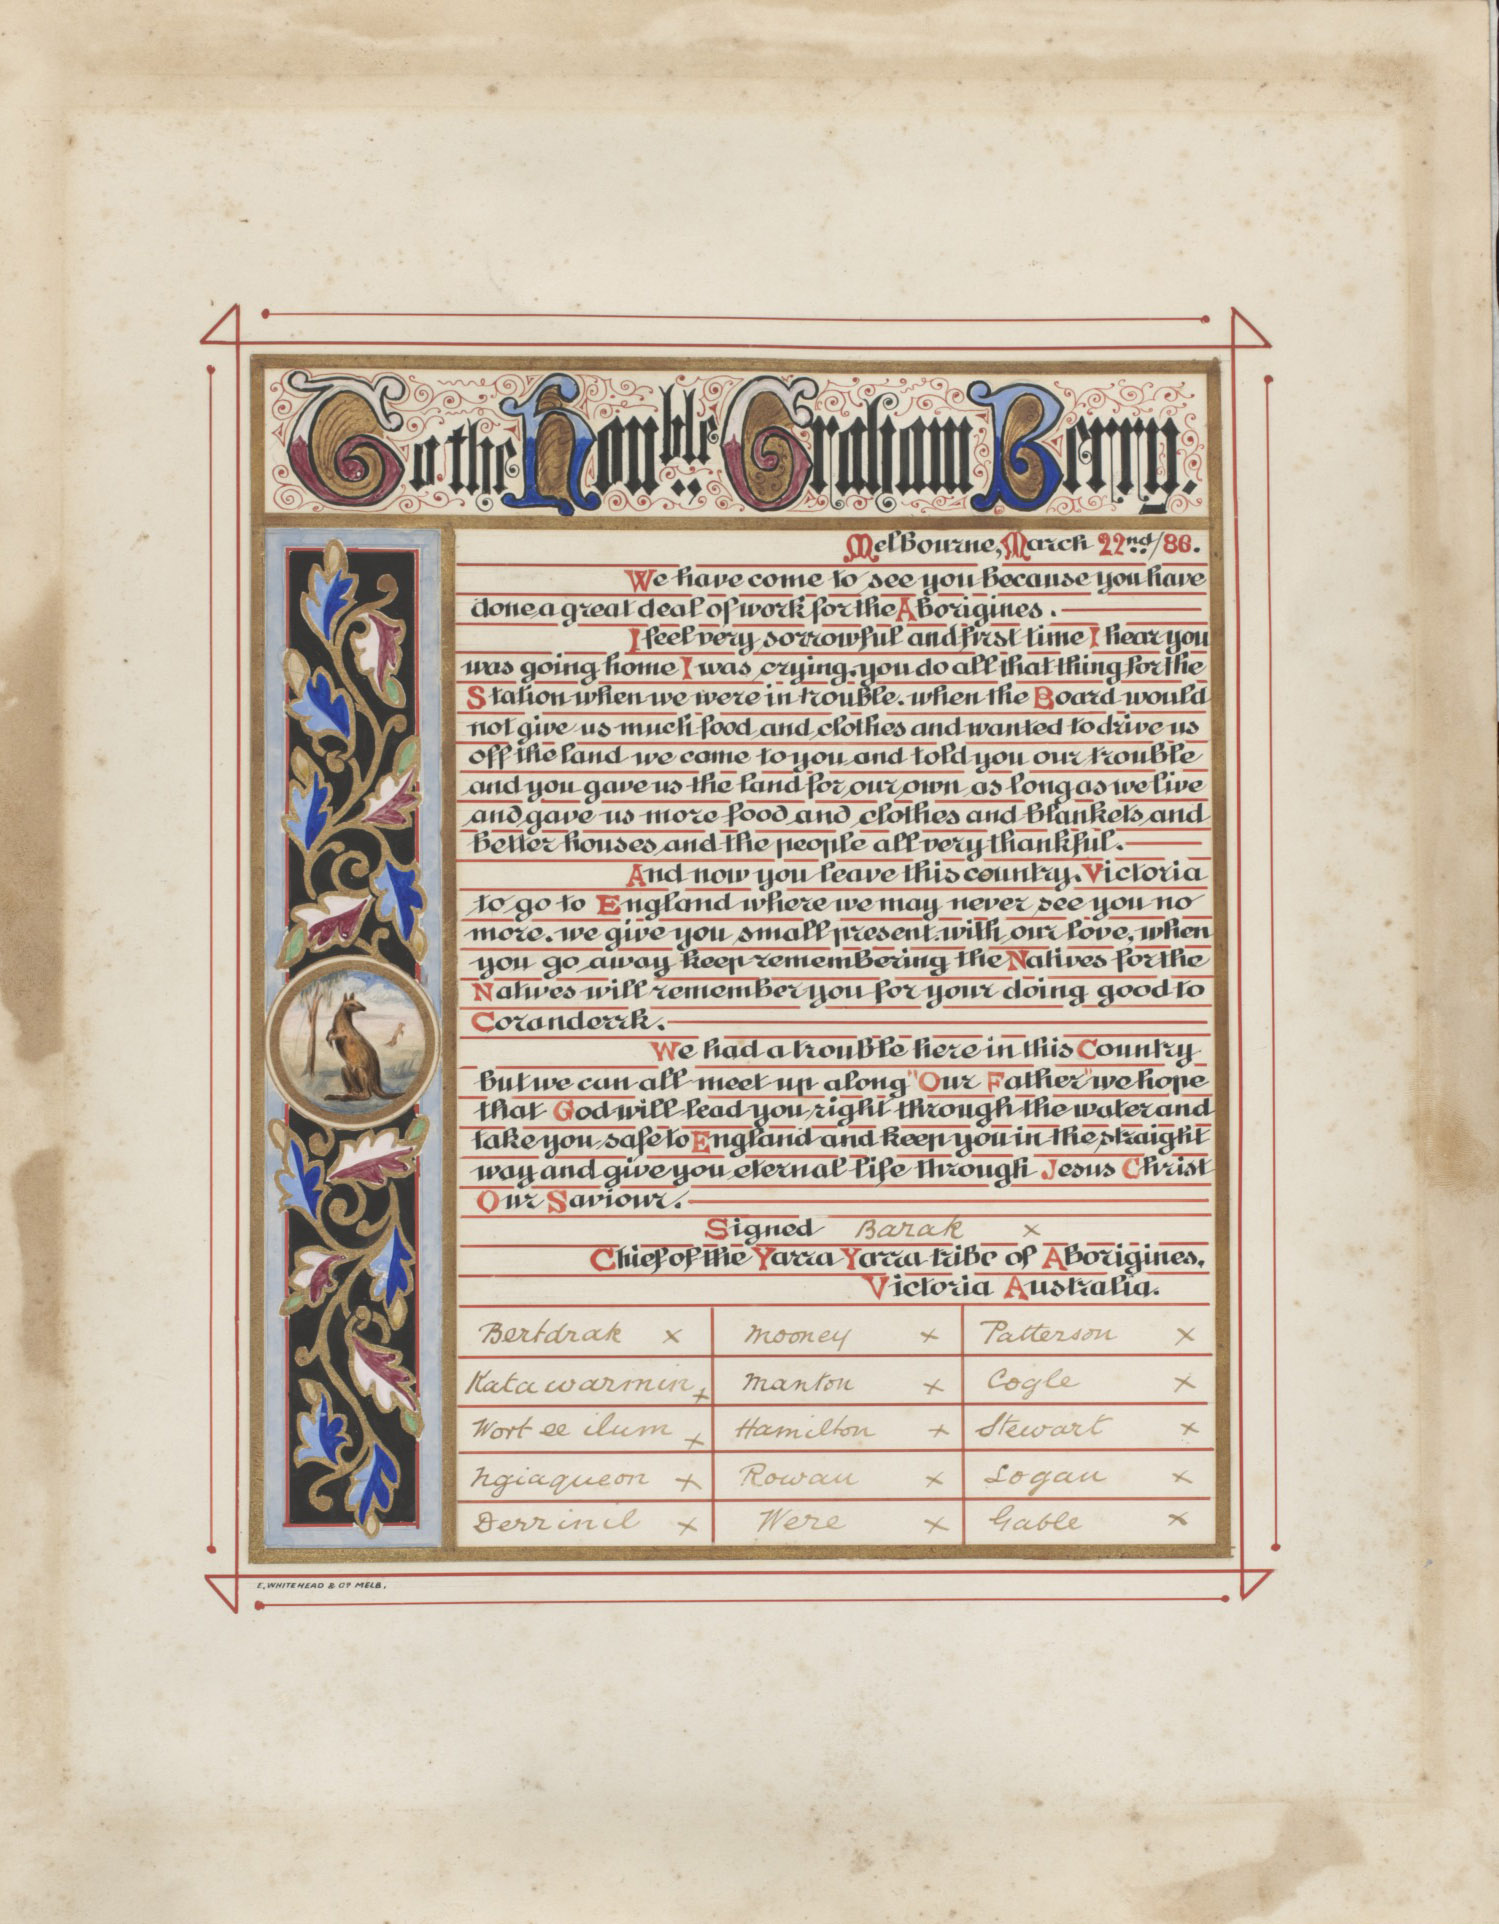 To the Honble Graham Berry.
Melbourne, March 22nd/86.
We have come to see you because you have
done a great deal of work for the Aborigines.
I feel very sorrowful and first time I hear you
was going home I was crying. you do all that thing for the
Station when we were in trouble. when the Board would
not give us much food and clothes and wanted to drive us
off the land we came to you and told you our trouble
and you gave us the land for our own as long as we live
and gave us more food and clothes and blankets and
better houses and the people all very thankful.
And now you leave this country. Victoria
to go to England where we may never see you no
more. we give you small present with our love, when
you go away keep remembering the Natives for the
Natives will remember you for your doing good to
Coranderrk.
We had a trouble here in this Country
but we can all meet up along "Our Father" we hope
that God will lead you right through the water and
take you safe to England and keep you in the straight
way and give you eternal life through Jesus Christ
Our Saviour.
Signed Barak x
Chief of the Yarra Yarra tribe of Aborigines,
Victoria Australia.
Bertdrak x Mooney x Patterson x
Katawarmin x Manton x Cogle x
Wort ee ilum x Hamilton x Stewart x
Ngiaqueon x Rowan x Logan x
Derrinil x Were x Gable x
E. WHITEHEAD & CO MELB.